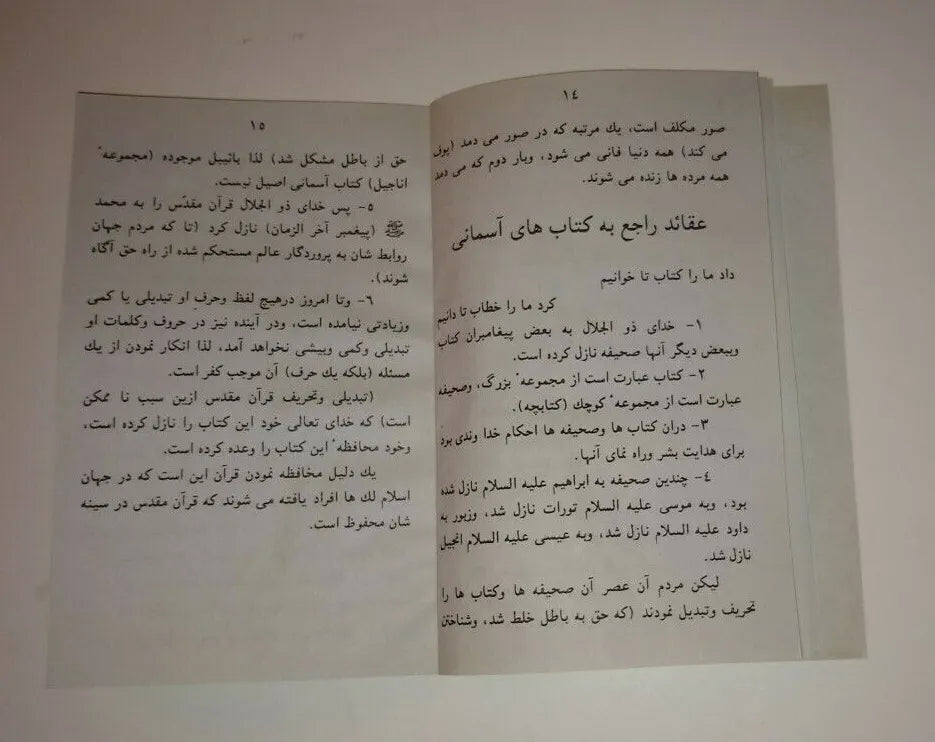 ١٤
صور مکلف است، یك مرتبه که در صور می دمد (پوف
می کند) همه دنیا فانی می شود، وبار دوم که می دمد
همه مرده ها زنده می شوند.
عقائد راجع به کتاب های آسمانی
داد ما را کتاب تا خوانیم
کرد ما را خطاب تا دانیم
١- خدای ذو الجلال به بعض پیغامبران کتاب
وببعض دیگر آنها صحیفه نازل کرده است.
٢- کتاب عبارت است از مجموعهٴ بزرگ، وصحیفه
عبارت است از مجموعهٴ کوچك (کتابچه).
٣- دران کتاب ها وصحیفه ها احکام خدا وندی بود
برای هدایت بشر وراه نمای آنها.
٤- چندین صحیفه به ابراهیم علیه السلام نازل شده
بود، وبه موسی علیه السلام تورات نازل شد، وزبور به
داود علیه السلام نازل شد، وبه عیسی علیه السلام انجیل
نازل شد.
لیکن مردم آن عصر آن صحیفه ها وکتاب ها را
تحریف وتبدیل نمودند (که حق به باطل خلط شد، وشناختن
١٥
حق از باطل مشکل شد) لذا بائیبل موجوده (مجموعهٴ
اناجیل) کتاب آسمانی اصیل نیست.
٥- پس خدای ذو الجلال قرآن مقدّس را به محمد
ﷺ (پیغمبر آخر الزمان) نازل کرد (تا که مردم جهان
روابط شان به پروردگار عالم مستحکم شده از راه حق آگاه
شوند).
٦- وتا امروز درهیچ لفظ وحرفِ او تبدیلی یا کمی
وزیادتی نیامده است، ودر آینده نیز در حروف وکلمات او
تبدیلی وکمی وبیشی نخواهد آمد، لذا انکار نمودن از یك
مسئله (بلکه یك حرف) آن موجب کفر است.
(تبدیلی وتحریف قرآن مقدس ازین سبب نا ممکن
است) که خدای تعالی خود این کتاب را نازل کرده است،
وخود محافظهٴ این کتاب را وعده کرده است.
یك دلیل محافظه نمودن قرآن این است که در جهان
اسلام لك ها افراد یافته می شوند که قرآن مقدس در سینه
شان محفوظ است.